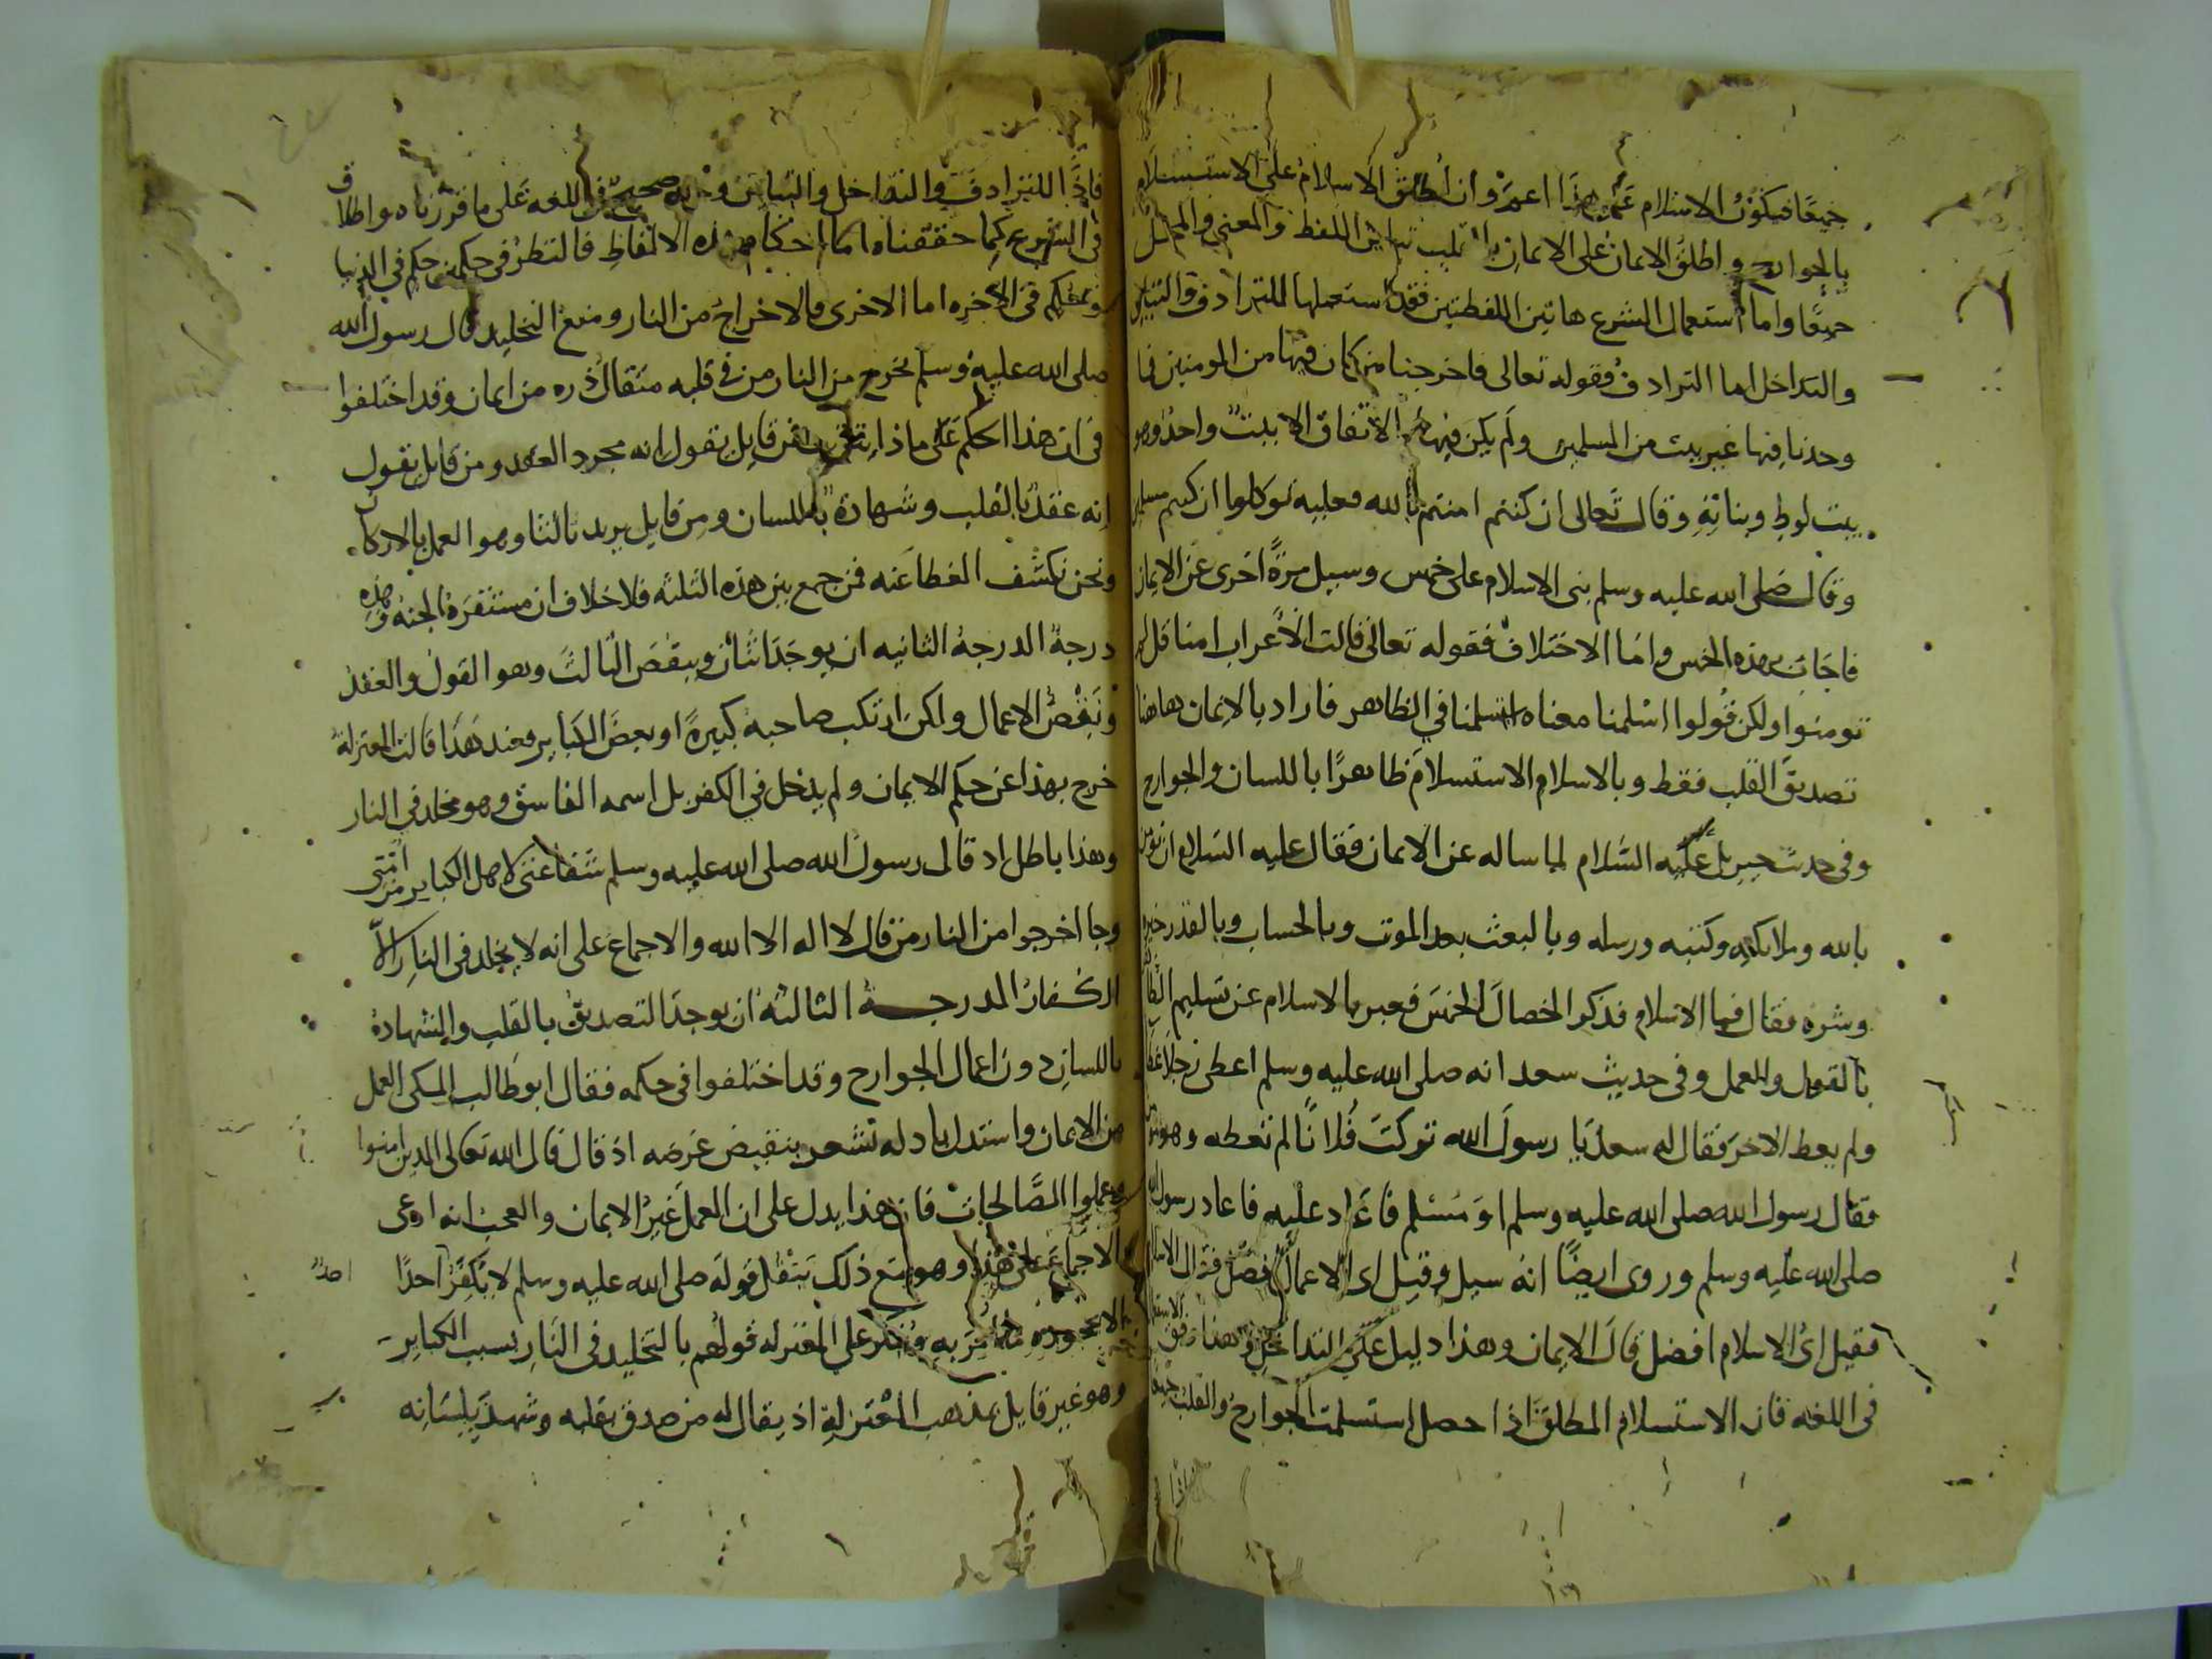 جميعا فيكون الاسلام على هذا اعم وان اطلق الاسلام على الاستسلام
بالجوارح واطلق الايمان على الايمان بالقلب تباين اللفظ والمعنى والمحل
جميعا واما استعمال الشرع هاتين اللفظتين فقد استعملها للترادف والتباين
والتداخل اما الترادف فقوله تعالى فاخرجنا من كان فيها من المومنين فما
وجدنا فيها غير بيت من المسلمين ولم يكن فيها الاتفاق الا بيت واحد وهو
بيت لوط وبناته وقال تعالى ان كنتم امنتم بالله فعليه توكلوا ان كنتم مسلمين
وقال صلى الله عليه وسلم بنى الاسلام على خمس وسيل مرة اخرى عن الايمان
فاجاب بهذه الخمس واما الاختلاف فقوله تعالى قالت الاعراب امنا قل لم
تومنوا ولكن قولوا اسلمنا معناه استسلمنا في الظاهر فاراد بالايمان هاهنا
تصديق القلب فقط وبالاسلام الاستسلام ظاهرا باللسان والجوارح
وفى حديث جبريل عليه السلام لما ساله عن الايمان فقال عليه السلام ان تومن
بالله وملايكته وكتبه ورسله وبالبعث بعد الموت وبالحساب وبالقدر خيره
وشره فقال فما الاسلام فذكر الخصال الخمس فعبر بالاسلام عن تسليم الظاهر
بالقول والعمل وفى حديث سعد انه صلى الله عليه وسلم اعطى رجلا عطا
ولم يعط الاخر فقال له سعد يا رسول الله تركت فلانا لم تعطه وهو مومن
فقال رسول الله صلى الله عليه وسلم او مسلم فاعاد عليه فاعاد رسول الله
صلى الله عليه وسلم وروى ايضا انه سيل وقيل اى الاعمال افضل فقال الاسلام
فقيل اى الاسلام افضل قال الايمان وهذا دليل على التداخل وهذا اوفق الاستعمالات
فى اللغه فان الاستسلام المطلق اذا حصل استسلمت الجوارح والقلب جميعا
فاذا الترادف والتداخل والتباين صحيح فى اللغه على ما قررناه واطلاق
فى الشرع كما حققناه اما احكام هذه الالفاظ فالنظر فى حكمين حكم في الدنيا
وحكم فى الاخره اما الاخرى فالاخراج من النار ومنع التخليد قال رسول الله
صلى الله عليه وسلم يخرج من النار من فى قلبه مثقال ذره من ايمان وقد اختلفوا
فى ان هذا الحكم على ماذا يترتب فمن قايل يقول انه مجرد العقد ومن قايل يقول
انه عقد بالقلب وشهادة باللسان ومن قايل يزيد ثالثا وهو العمل بالاركان
ونحن نكشف الغطا عنه فمن جمع بين هذه الثلثه فلا خلاف ان مستقره الجنه وهذه
درجة الدرجة الثانيه ان يوجد اثنان وينقص الثالث وهو القول والعقد
ونقص الاعمال ولكن ارتكب صاحبه كبيرة او بعض الكباير فعند هذا قالت المعتزلة
خرج بهذا عن حكم الايمان ولم يدخل في الكفر بل اسمه الفاسق وهو مخلد في النار
وهذا باطل اذ قال رسول الله صلى الله عليه وسلم شفاعتى لاهل الكباير من امتى
وجا اخرجوا من النار من قال لا اله الا الله والاجماع على انه لا يخلد فى النار الا
الكفار الدرجة الثالثه ان يوجد التصديق بالقلب والشهادة
باللسان دون اعمال الجوارح وقد اختلفوا فى حكمه فقال ابو طالب المكى العمل
من الايمان واستدل بادله تشعر بنقيض غرضه اذ قال قال الله تعالى الذين امنوا
وعملوا الصالحات فان هذا يدل على ان العمل غير الايمان والعجب انه ادعى
الاجماع على هذا وهو مع ذلك ينقل قوله صلى الله عليه وسلم لا يكفر احدا
الا بجحوده ما اقر به وينكر على المعتزله قولهم بالتخليد فى النار بسبب الكباير
وهو غير قايل بمذهب المعتزلة اذ يقال له من صدق بقلبه وشهد بلسانه